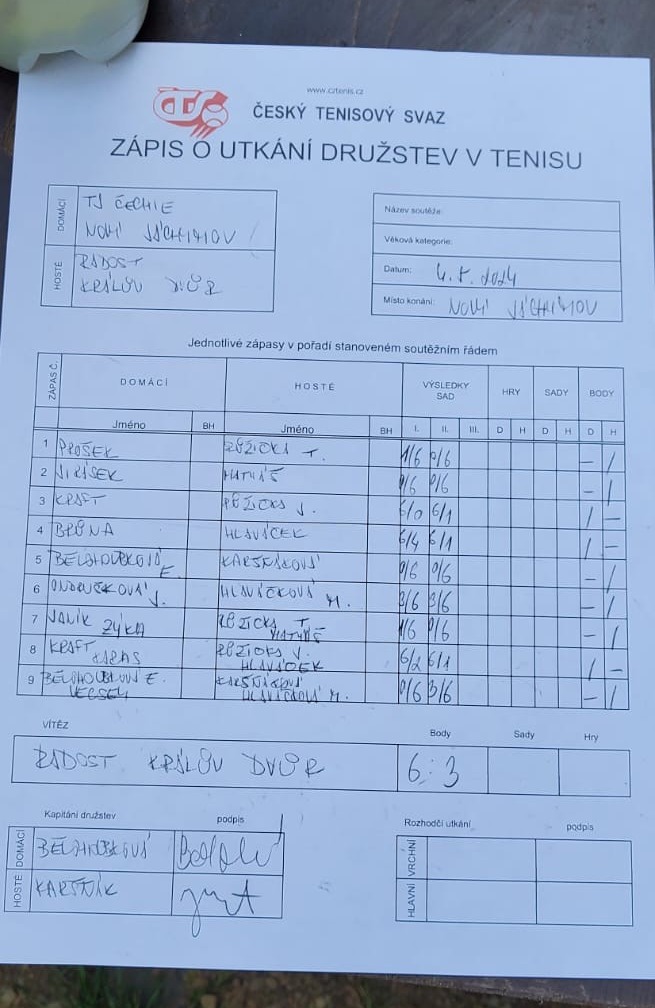 www.cztenis.cz
ČTS
ČESKÝ TENISOVÝ SVAZ
ZÁPIS O UTKÁNÍ DRUŽSTEV V TENISU
DOMÁCÍ
TJ ČECHIE
NOVÝ JÁCHYMOV
HOSTÉ
RADOST
KRÁLŮV DVŮR
Název soutěže:
Věková kategorie:
Datum: 4.5.2024
Místo konání: NOVÝ JÁCHYMOV
Jednotlivé zápasy v pořadí stanoveném soutěžním řádem
ZÁPAS Č. DOMÁCÍ HOSTÉ VÝSLEDKY SAD HRY SADY BODY
Jméno BH Jméno BH I. II. III. D H D H D H
1 PROŠEK RŮŽIČKA T. 1/6 0/6 – /
2 JIRÁSEK MATYÁŠ 0/6 0/6 – /
3 KRAFT RŮŽIČKA J. 6/0 6/1 / –
4 BRŮNA HLAVÁČEK 6/4 6/1 / –
5 BĚLOHOUBKOVÁ E. KARSŇÁKOVÁ 0/6 0/6 – /
6 ONDRUŠKOVÁ J. HLAVÁČKOVÁ M. 3/6 3/6 – /
7 ZÝKA RŮŽIČKA T. MATYÁŠ 1/6 0/6 – /
8 KRAFT RŮŽIČKA J. HLAVÁČEK 6/2 6/1 / –
9 BĚLOHOUBKOVÁ E. KARSŇÁKOVÁ HLAVÁČKOVÁ M. 0/6 3/6 – /
VÍTĚZ Body Sady Hry
RADOST KRÁLŮV DVŮR 6:3
Kapitáni družstev podpis
DOMÁCÍ BĚLOHOUBKOVÁ
HOSTÉ KARSŇÁK
Rozhodčí utkání podpis
VRCHNÍ
HLAVNÍ